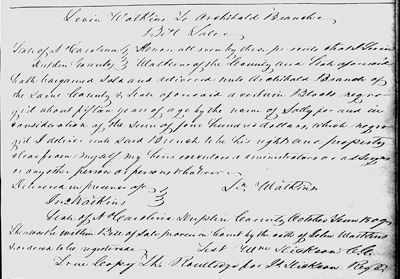 Levin Watkins To Archibald Branch
Bill Sale
State of N Carolina } Know all men by these presents that I Levin
Duplin County } Watkins of the County and State aforesaid
hath bargained Sold and delivered unto Archibald Branch of
the Same County & State aforesaid a certain Black negro
girl about fifteen years of age by the name of Sally for and in
consideration of the Sum of four hundred dollars, which negro
girl I deliver unto said Branch to be his right and property
clear from myself my heirs executors administrators or assigns
or any other person or persons whatever
Delivered in presence of } Watkins
Jno Watkins
State of N Carolina Duplin County October Term 1809
Then was the within Bill of Sale proven in Court by the oath of John Watkins
& ordered to be registered Test Wm Dickson C.C.
True Copy Dickson Reg